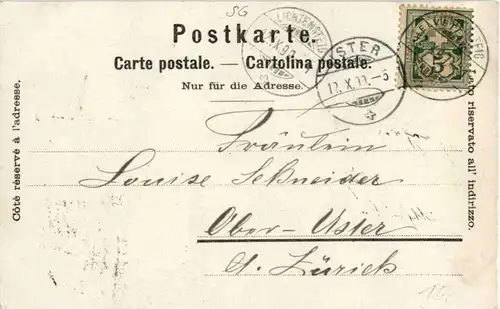 SG
Postkarte.
Carte postale. — Cartolina postale.
Nur für die Adresse.
Côté réservé à l'adresse.
Lato riservato all' indirizzo.
LICHTENSTEIG
USTER
12. X. 99. - 5
Fräulein
Louise Schneider
Ober-Uster
Ct. Zürich